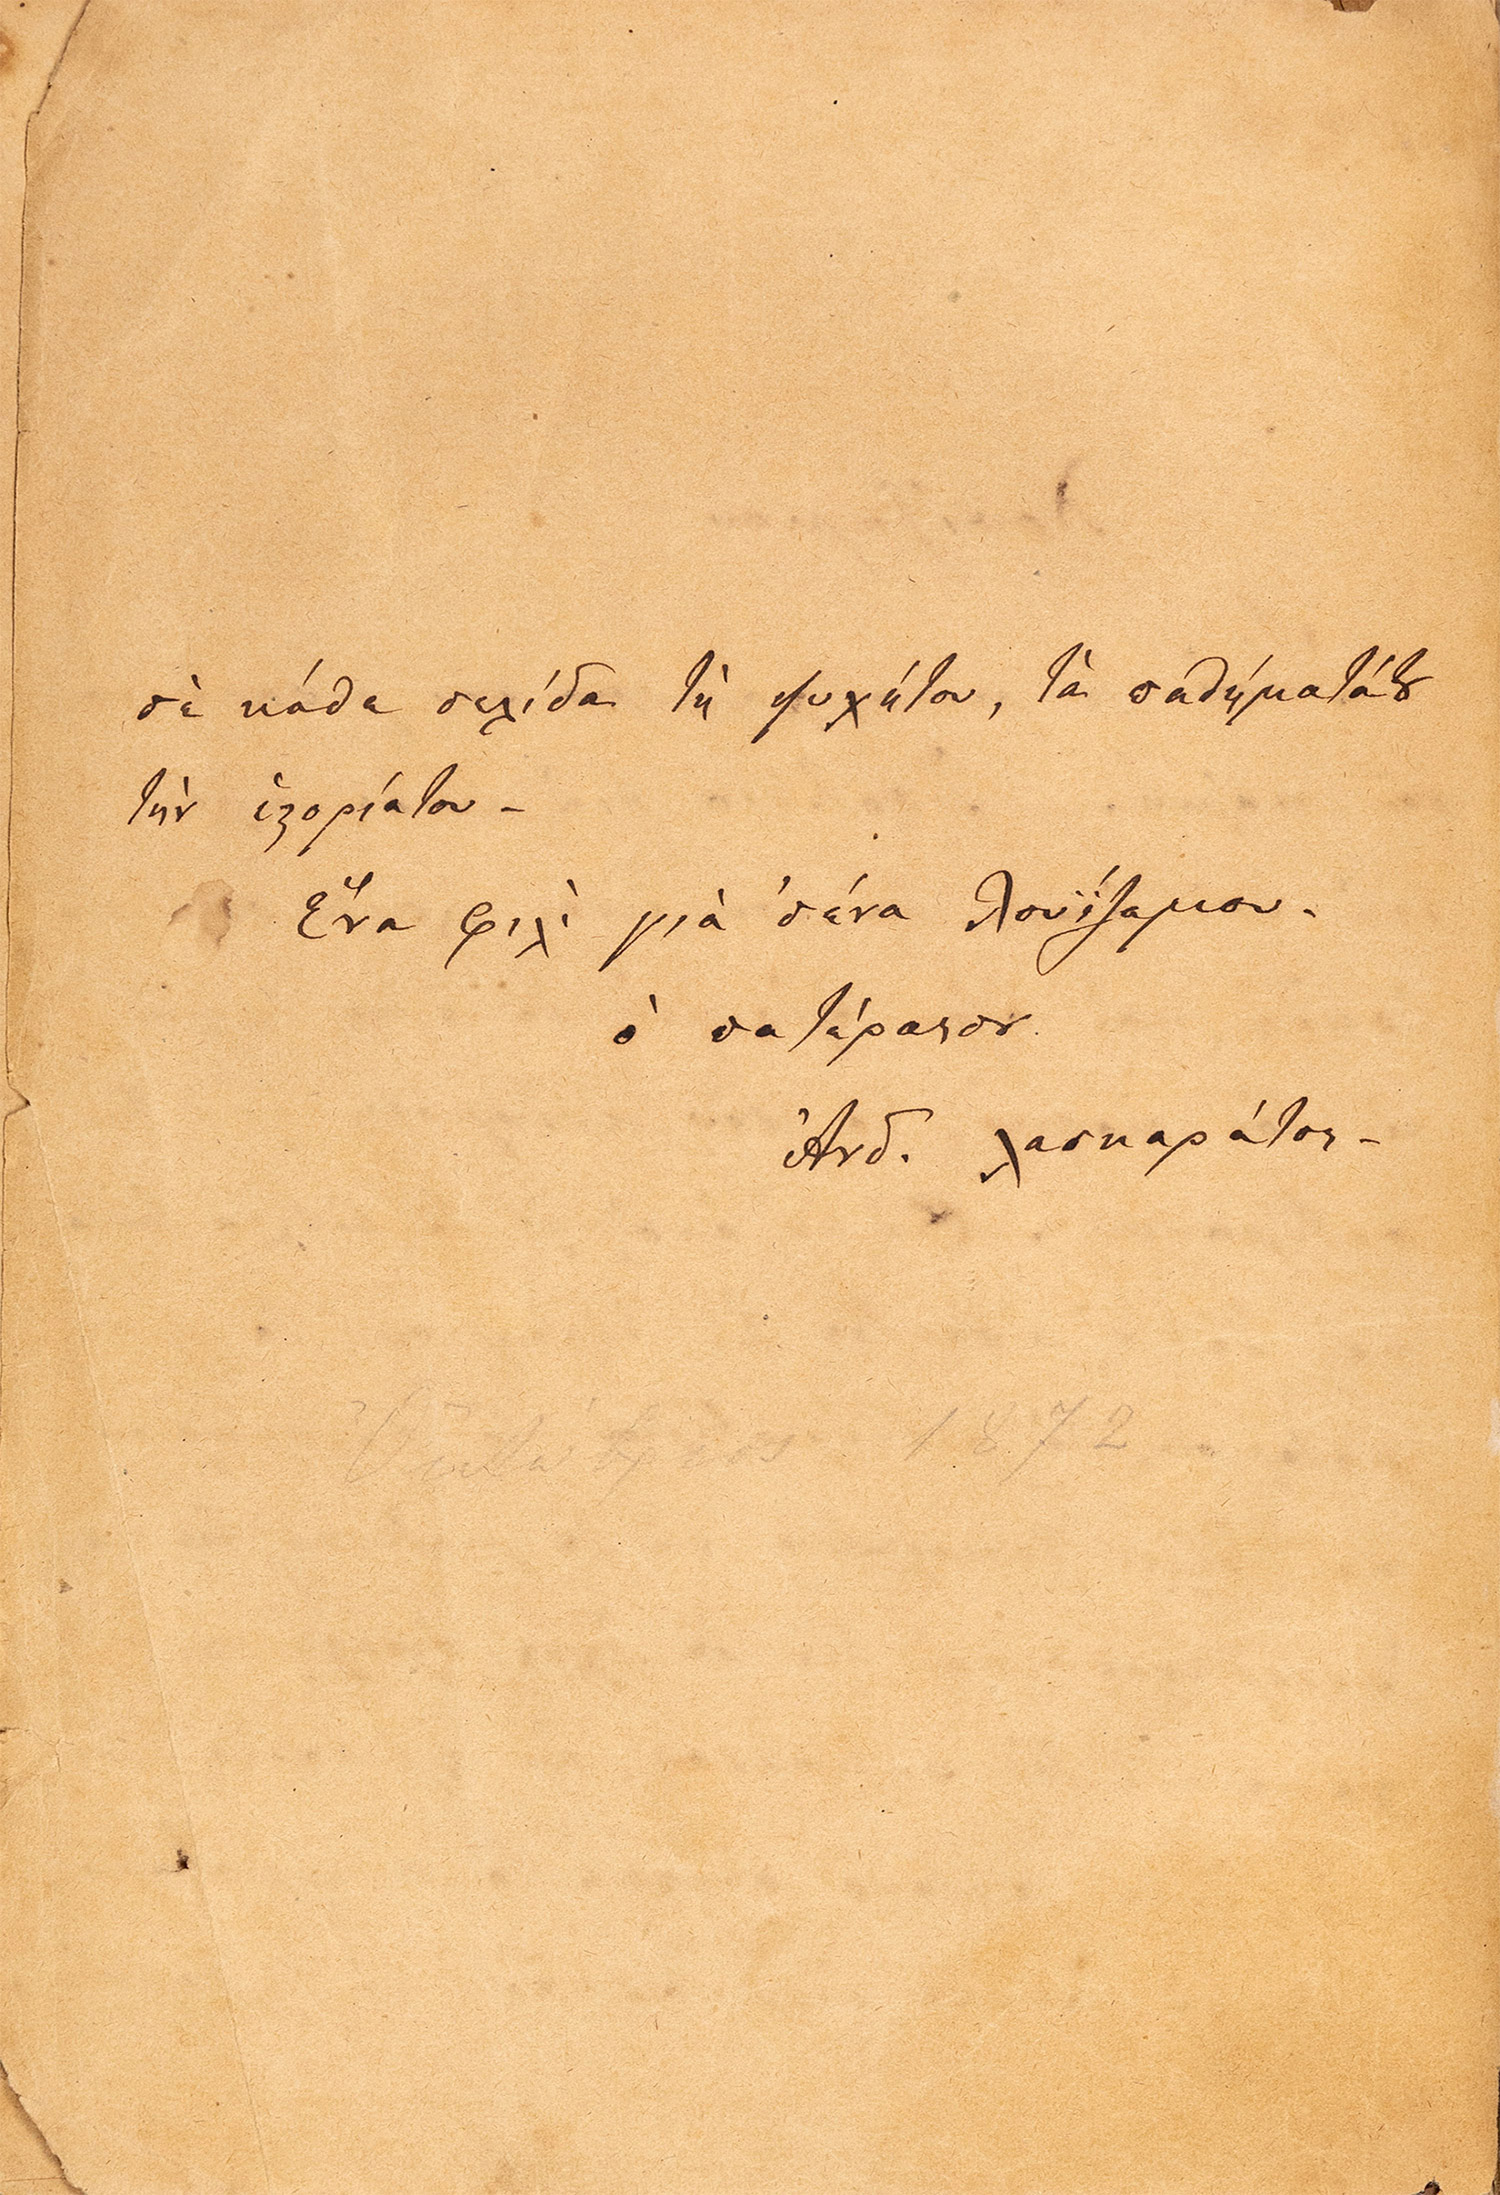 σὲ κάθε σελίδα τὴ ψυχήτου, τὰ παθήματάτȣ
τὴν ἐξορίατου -
Ἕνα φιλὶ γιὰ 'σένα Λουΐζαμου.
ὁ πατέραςσου
Ἀνδ. Λασκαράτος -
Ὀκτώβριος 1872